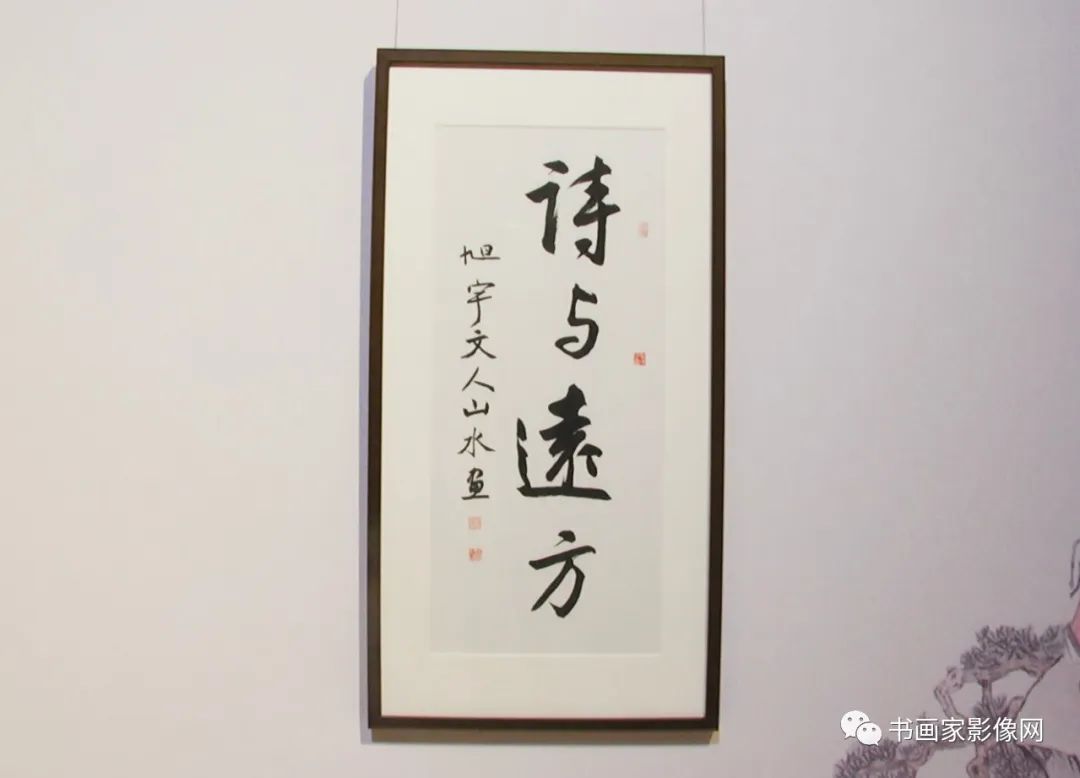 诗与遠方
旭宇文人山水画
书画家影像网